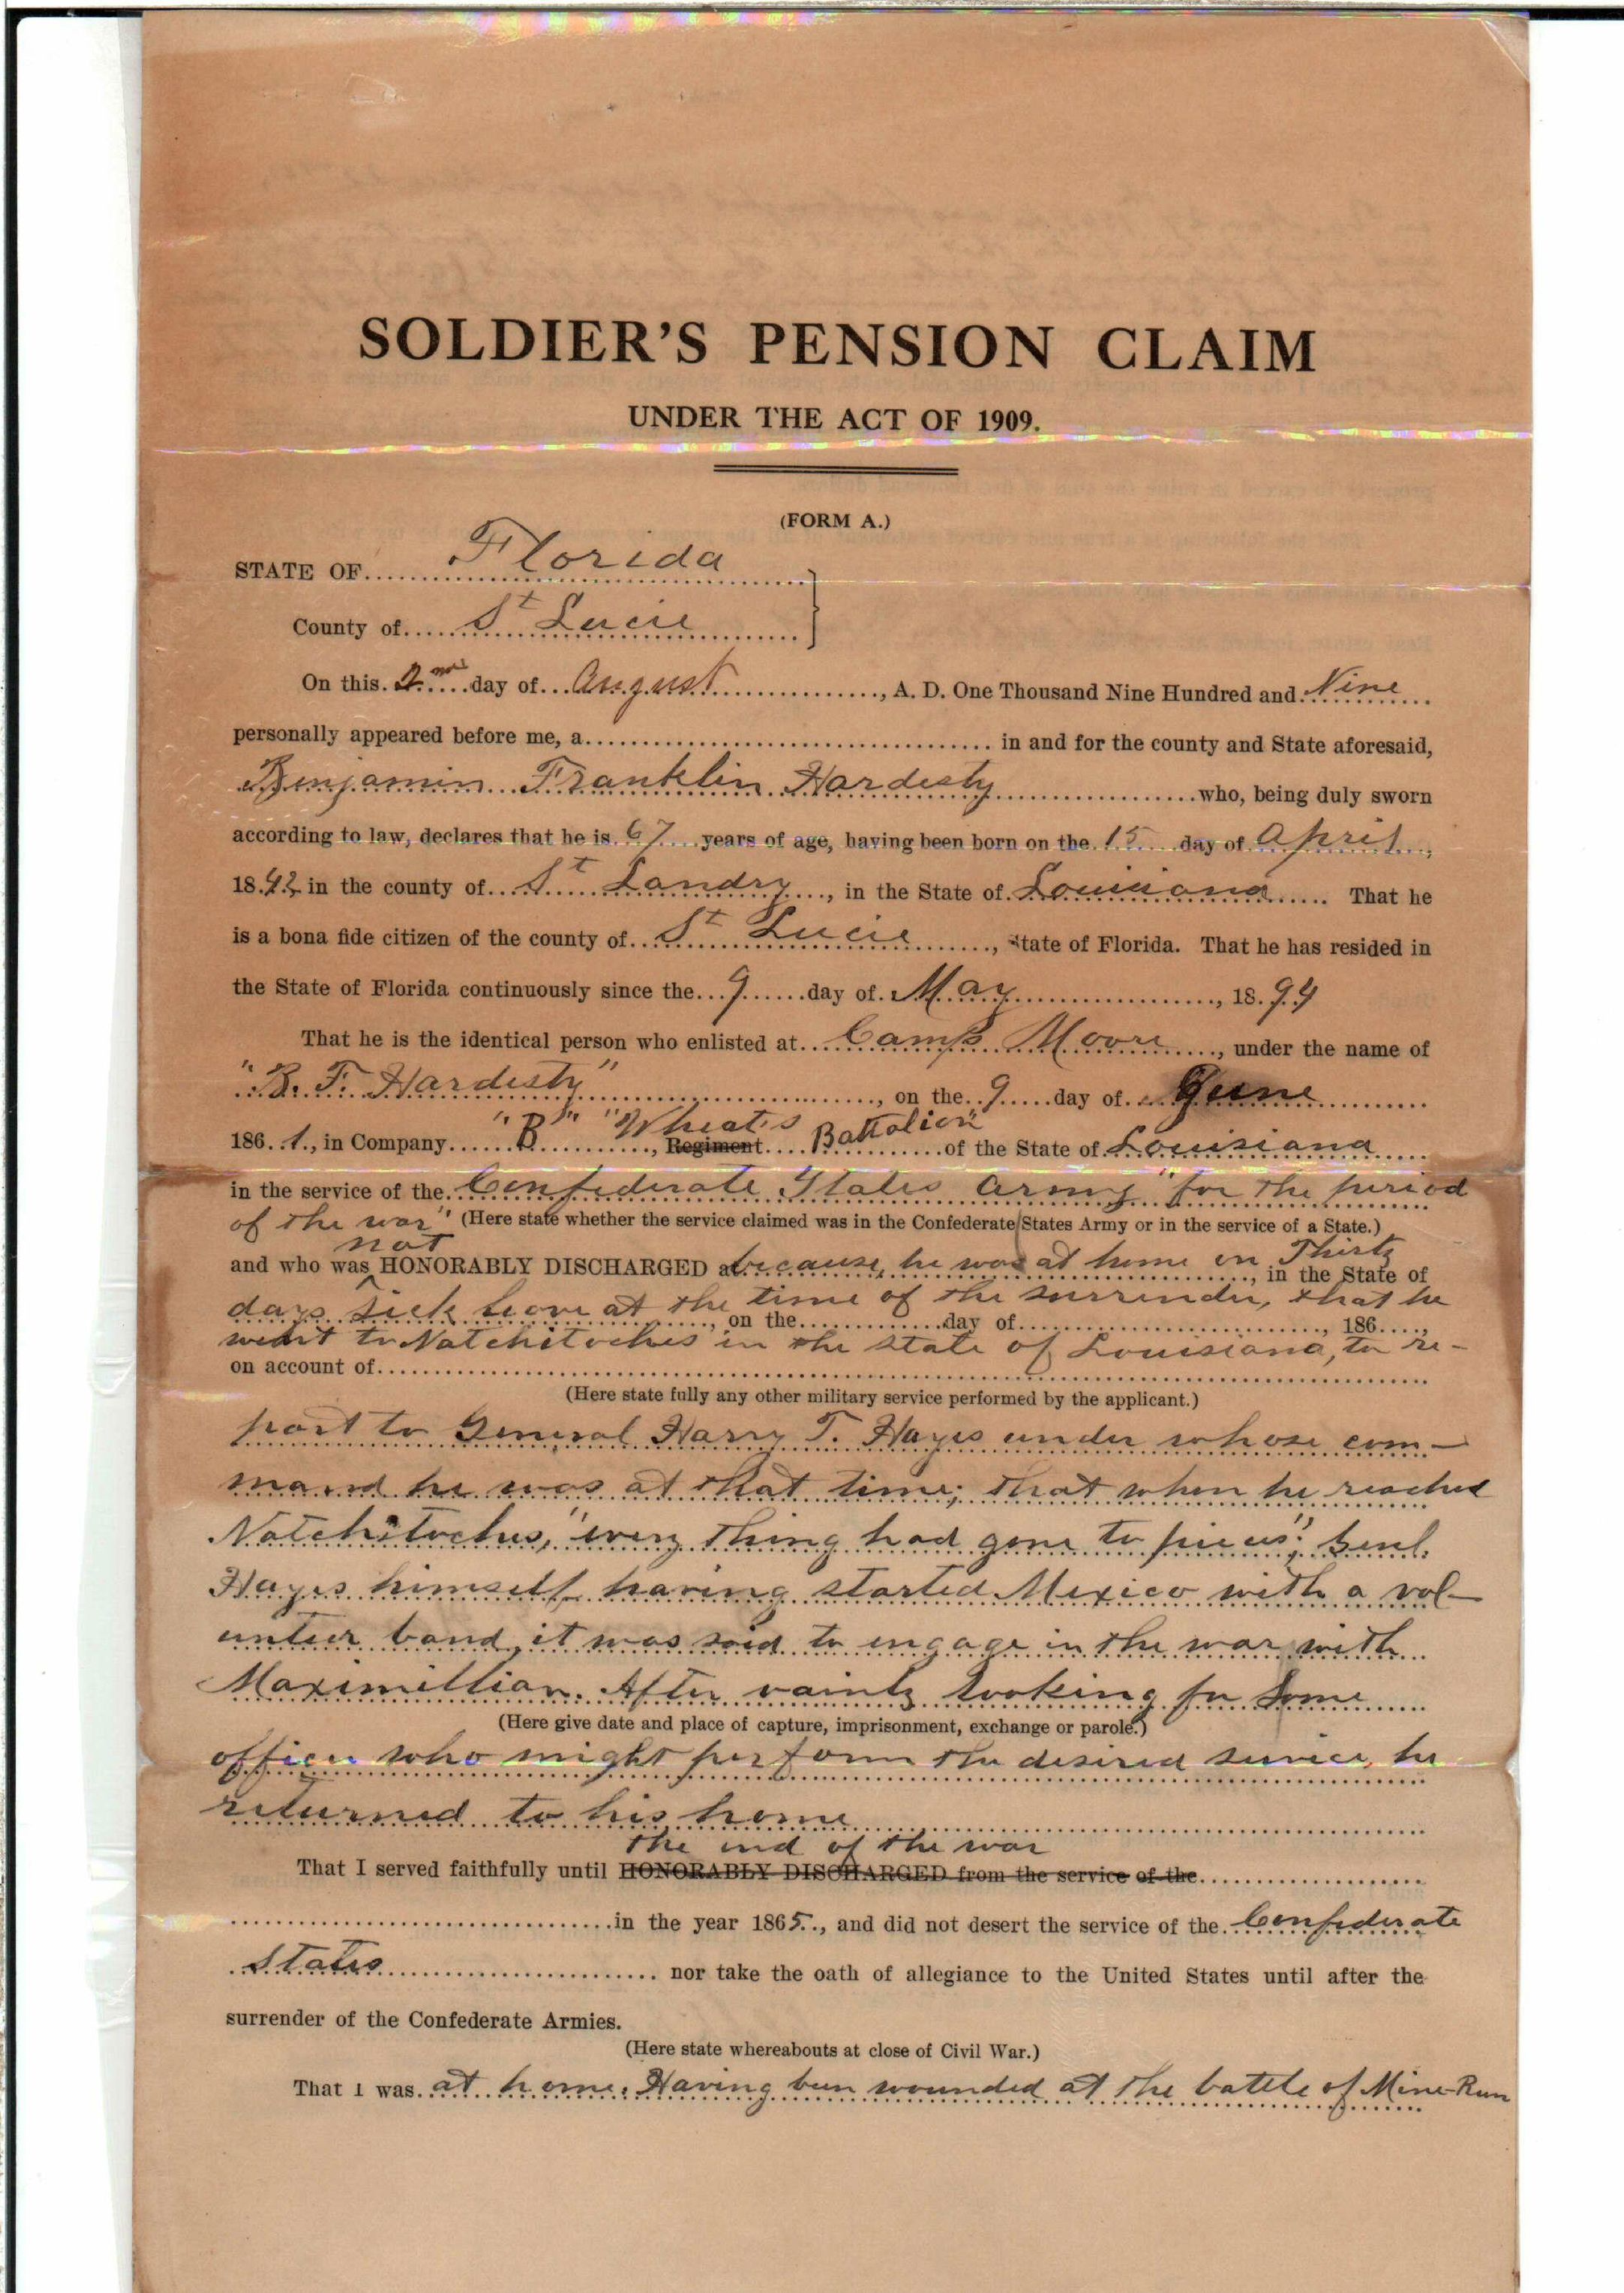 SOLDIER'S PENSION CLAIM
UNDER THE ACT OF 1909.
(FORM A.)
STATE OF Florida
County of St Lucie
On this 2nd day of August, A. D. One Thousand Nine Hundred and Nine
personally appeared before me, a in and for the county and State aforesaid,
Benjamin Franklin Hardesty who, being duly sworn
according to law, declares that he is 67 years of age, having been born on the 15 day of April,
1842 in the county of St Landry, in the State of Louisiana. That he
is a bona fide citizen of the county of St Lucie, State of Florida. That he has resided in
the State of Florida continuously since the 9 day of May, 1894
That he is the identical person who enlisted at Camp Moore, under the name of
"B. F. Hardesty", on the 9 day of June
1861, in Company "B" "Wheat's, Regiment Battalion" of the State of Louisiana
in the service of the Confederate States Army "for the period
of the war" (Here state whether the service claimed was in the Confederate States Army or in the service of a State.)
not
and who was HONORABLY DISCHARGED at because, he was at home on Thirty, in the State of
days sick leave at the time of the surrender, that he
, on the day of, 186,
went to Natchitoches in the state of Louisiana, to re-
on account of
(Here state fully any other military service performed by the applicant.)
port to General Harry T. Hayes under whose com-
mand he was at that time; that when he reached
Natchitoches, "every thing had gone to pieces"; Genl.
Hayes himself having started Mexico with a vol-
unteer band, it was said to engage in the war with
Maximillian. After vainly looking for some
(Here give date and place of capture, imprisonment, exchange or parole.)
officer who might perform the desired service, he
returned to his home
the end of the war
That I served faithfully until HONORABLY DISCHARGED from the service of the
in the year 1865, and did not desert the service of the Confederate
States nor take the oath of allegiance to the United States until after the
surrender of the Confederate Armies.
(Here state whereabouts at close of Civil War.)
That I was at home. Having been wounded at the battle of Mine-Run